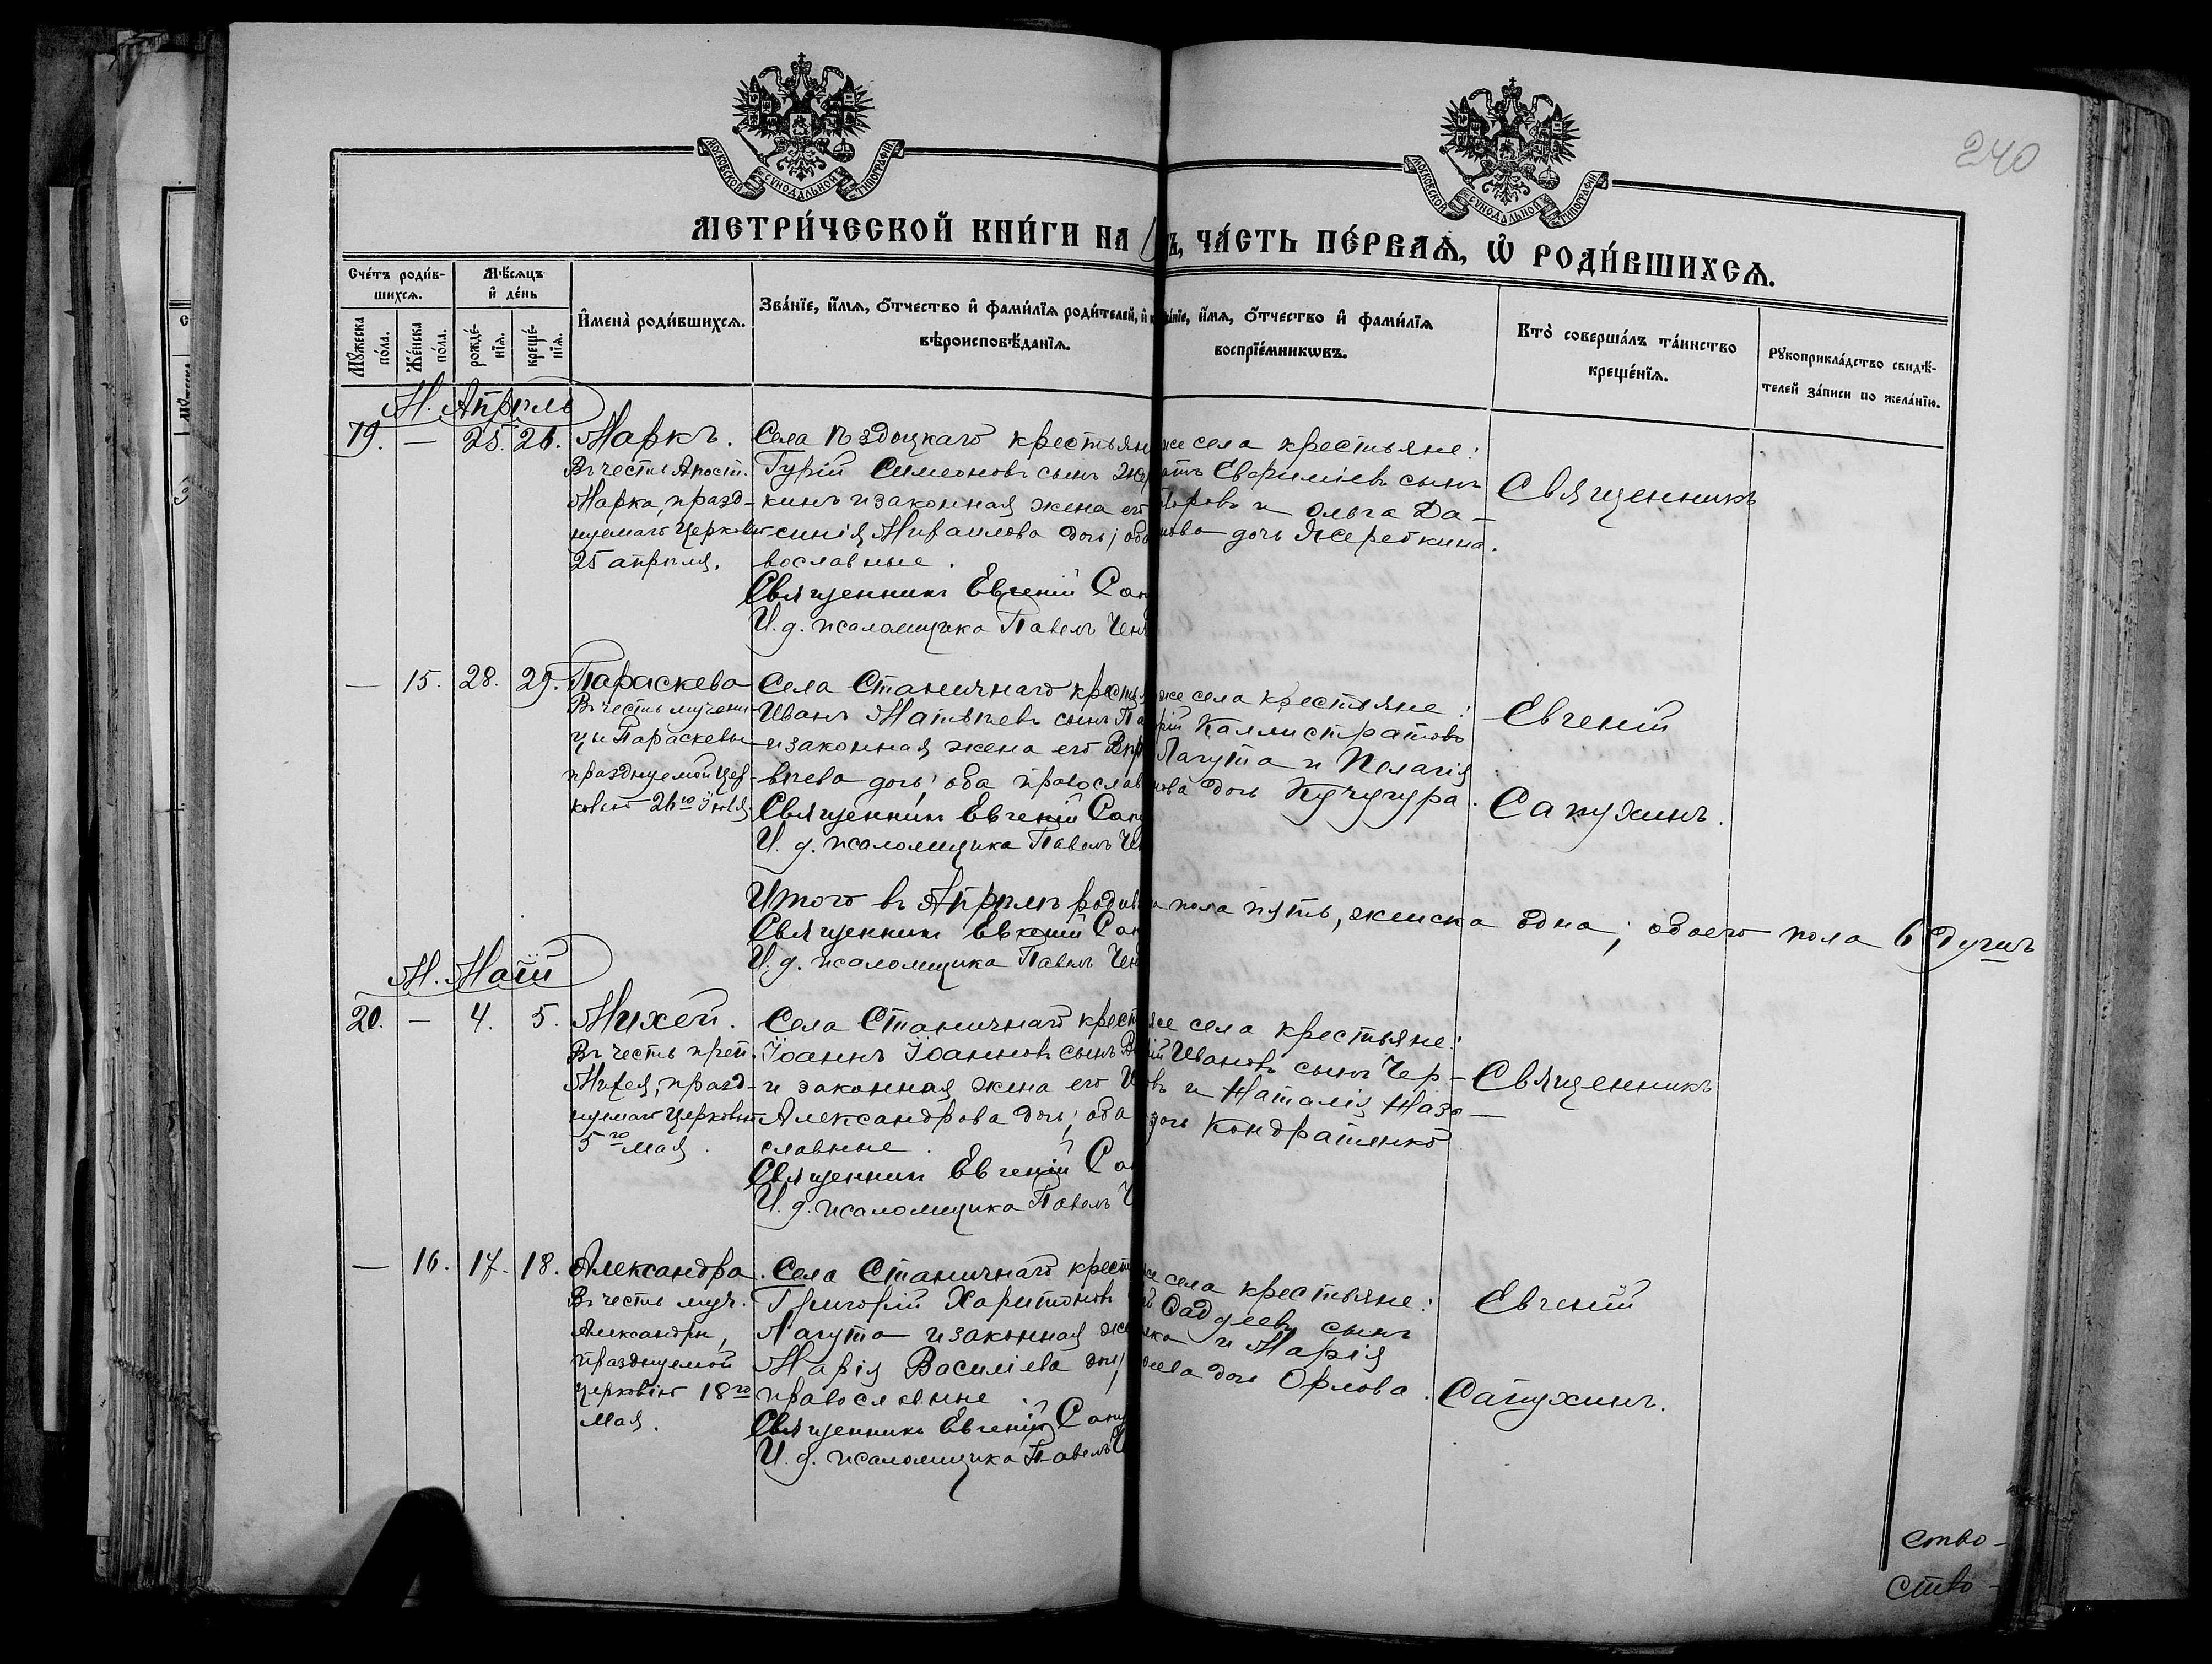 240
МОСКОВСКОЙ СѴНОДАЛЬНОЙ ТИПОГРАФІИ
МОСКОВСКОЙ СѴНОДАЛЬНОЙ ТИПОГРАФІИ
МЕТРИ́ЧЕСКОЙ КНИ́ГИ НА 1 Ъ, ЧА́СТЬ ПЕ́РВАѦ, Ѽ РОДИ́ВШИХСѦ.
Сче́тъ роди́в-
шихсѧ.
Мꙋ́жеска
по́ла.
Же́нска
по́ла.
Мѣ́сѧцъ
и҆ де́нь
рожде́-
нїѧ.
креще́-
нїѧ.
И҆мена̀ роди́вшихсѧ.
Зва́нїе, и҆́мѧ, ѻ҆́тчество и҆ фами́лїѧ роди́телей, и҆ к
вѣроисповѣ́данїѧ.
а́нїе, и҆́мѧ, ѻ҆́тчество и҆ фами́лїѧ
воспрїе́мникѡвъ.
Кто̀ соверша́лъ та́инство
креще́нїѧ.
Рꙋкоприкла́дство свидѣ́-
телей за́писи по жела́нїю.
М. Апрѣль
19. — 25. 26. Маркъ.
Въ честь Апост.
Марка, празд-
нуемаго Церковію
25 апрѣля.
Села крестьян
Гурій Симеоновъ сынъ Же
кинъ и законная жена его
синія Михаилова дочь; оба
вославные.
Священникъ Евгеній Сап
И. д. псаломщика Павелъ Чен
же села крестьяне:
Евфиміевъ сынъ
и Ольга Да-
нова дочь Жеребкина.
Священникъ
— 15. 28. 29. Параскева
Въ честь мучени-
цы Параскевы
празднуемой Цер-
ковью 26го Іюля
Села Станичнаго крестья
Иванъ Матвѣевъ сынъ Па
и законная жена его
вѣева дочь; оба православ
Священникъ Евгеній Сап
И. д. псаломщика Павелъ Че
же села крестьяне:
рій Каллистратовъ
Лагута и Пелагія
нова дочь Кучугура.
Евгеній
Сапухинъ.
Итого въ Апрѣлѣ родив
Священникъ Евгеній Сап
И. д. псаломщика Павелъ Чен
а пола пять, женска одна; обоего пола 6 душъ
М. Май
20. — 4. 5. Михей.
Въ честь преп.
Михея, празд-
нуемаго Церковію
5го мая.
Села Станичнаго крест
Іоаннъ Іоанновъ сынъ В
и законная жена его И
Александрова дочь; оба
славные.
Священникъ Евгеній Сап
И. д. псаломщика Павелъ Ч
же села крестьяне:
ій Ивановъ сынъ Чер-
въ и Наталія Наза-
дочь Кондратенко
Священникъ
— 16. 17. 18. Александра.
Въ честь муч.
Александры,
празднуемой
церковію 18го
мая.
Села Станичнаго крест
Григорій Харитоновъ
Лагута и законная же
Марія Василіева дочь;
православные.
Священникъ Евгеній Сапу
И. д. псаломщика Павелъ Ч
же села крестьяне:
ій Фаддеевъ сынъ
нка и Марія
еева дочь Орлова.
Евгеній
Сапухинъ.
ство-
ство-